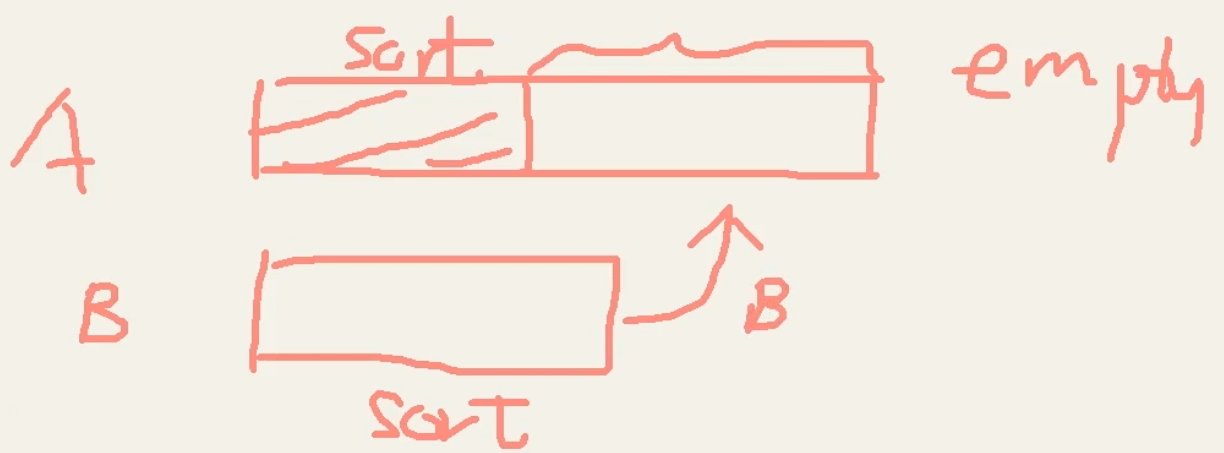 sort
A
empty
B
B
sort